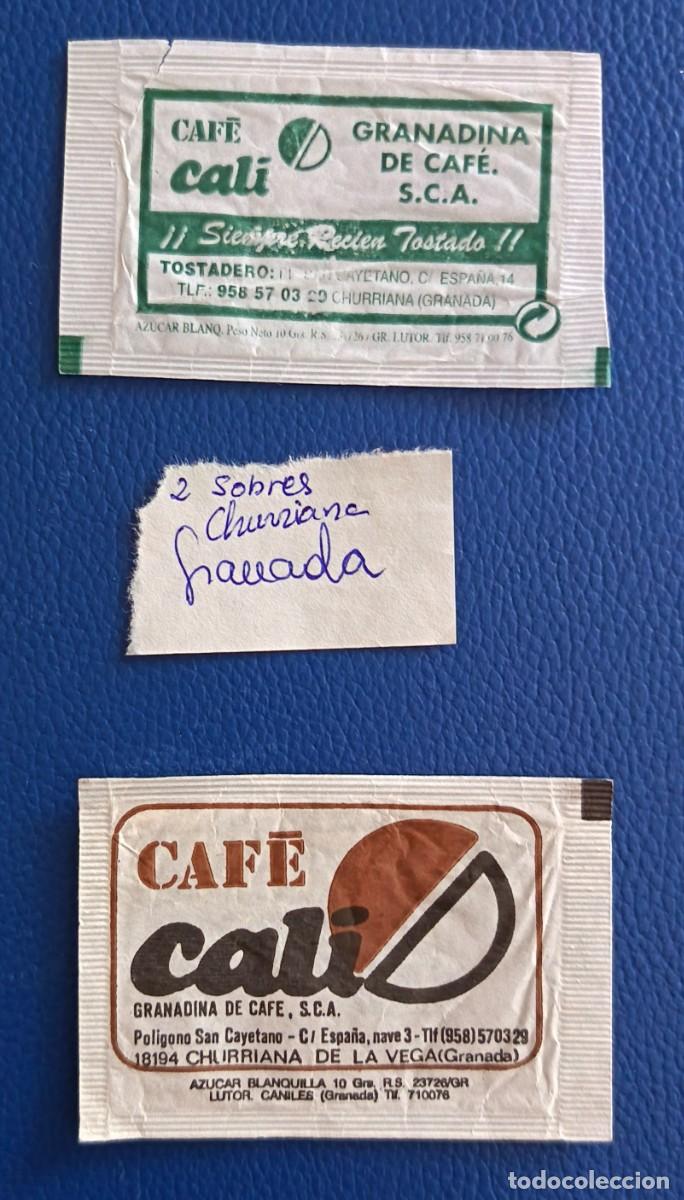 CAFÉ
cali
GRANADINA
DE CAFÉ.
S.C.A.
¡¡ Siempre Recien Tostado !!
TOSTADERO: CAYETANO, C/ ESPAÑA, 14
TLF.: 958 57 03 29 CHURRIANA (GRANADA)
AZUCAR BLANQ. Peso Neto 10 Grs. R.S. 23726 / GR. LUTOR. Tlf. 958 71 00 76
2 Sobres
Churriana
Granada
CAFÉ
cali
GRANADINA DE CAFE, S.C.A.
Poligono San Cayetano - C/ España, nave 3 - Tlf (958) 570329
18194 CHURRIANA DE LA VEGA (Granada)
AZUCAR BLANQUILLA 10 Grs. R.S. 23726/GR
LUTOR. CANILES (Granada) Tlf. 710076
todocoleccion